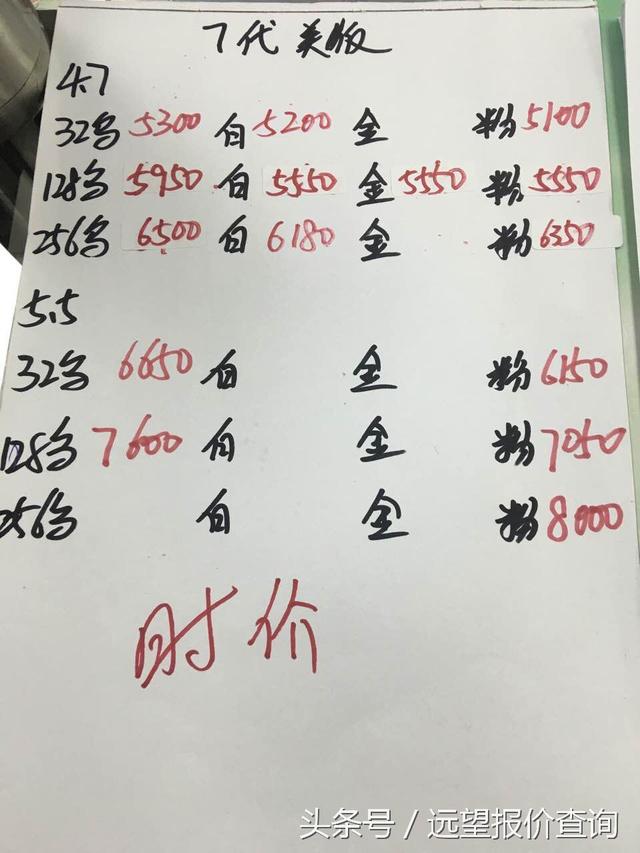 7代美版
4.7
32 5300 白 5200 金 粉 5100
128 5950 白 5550 金 5550 粉 5550
256 6500 白 6180 金 粉 6350
5.5
32 6650 白 金 粉 6150
128 7600 白 金 粉 7050
256 白 金 粉 8000
时价
头条号 / 远望报价查询